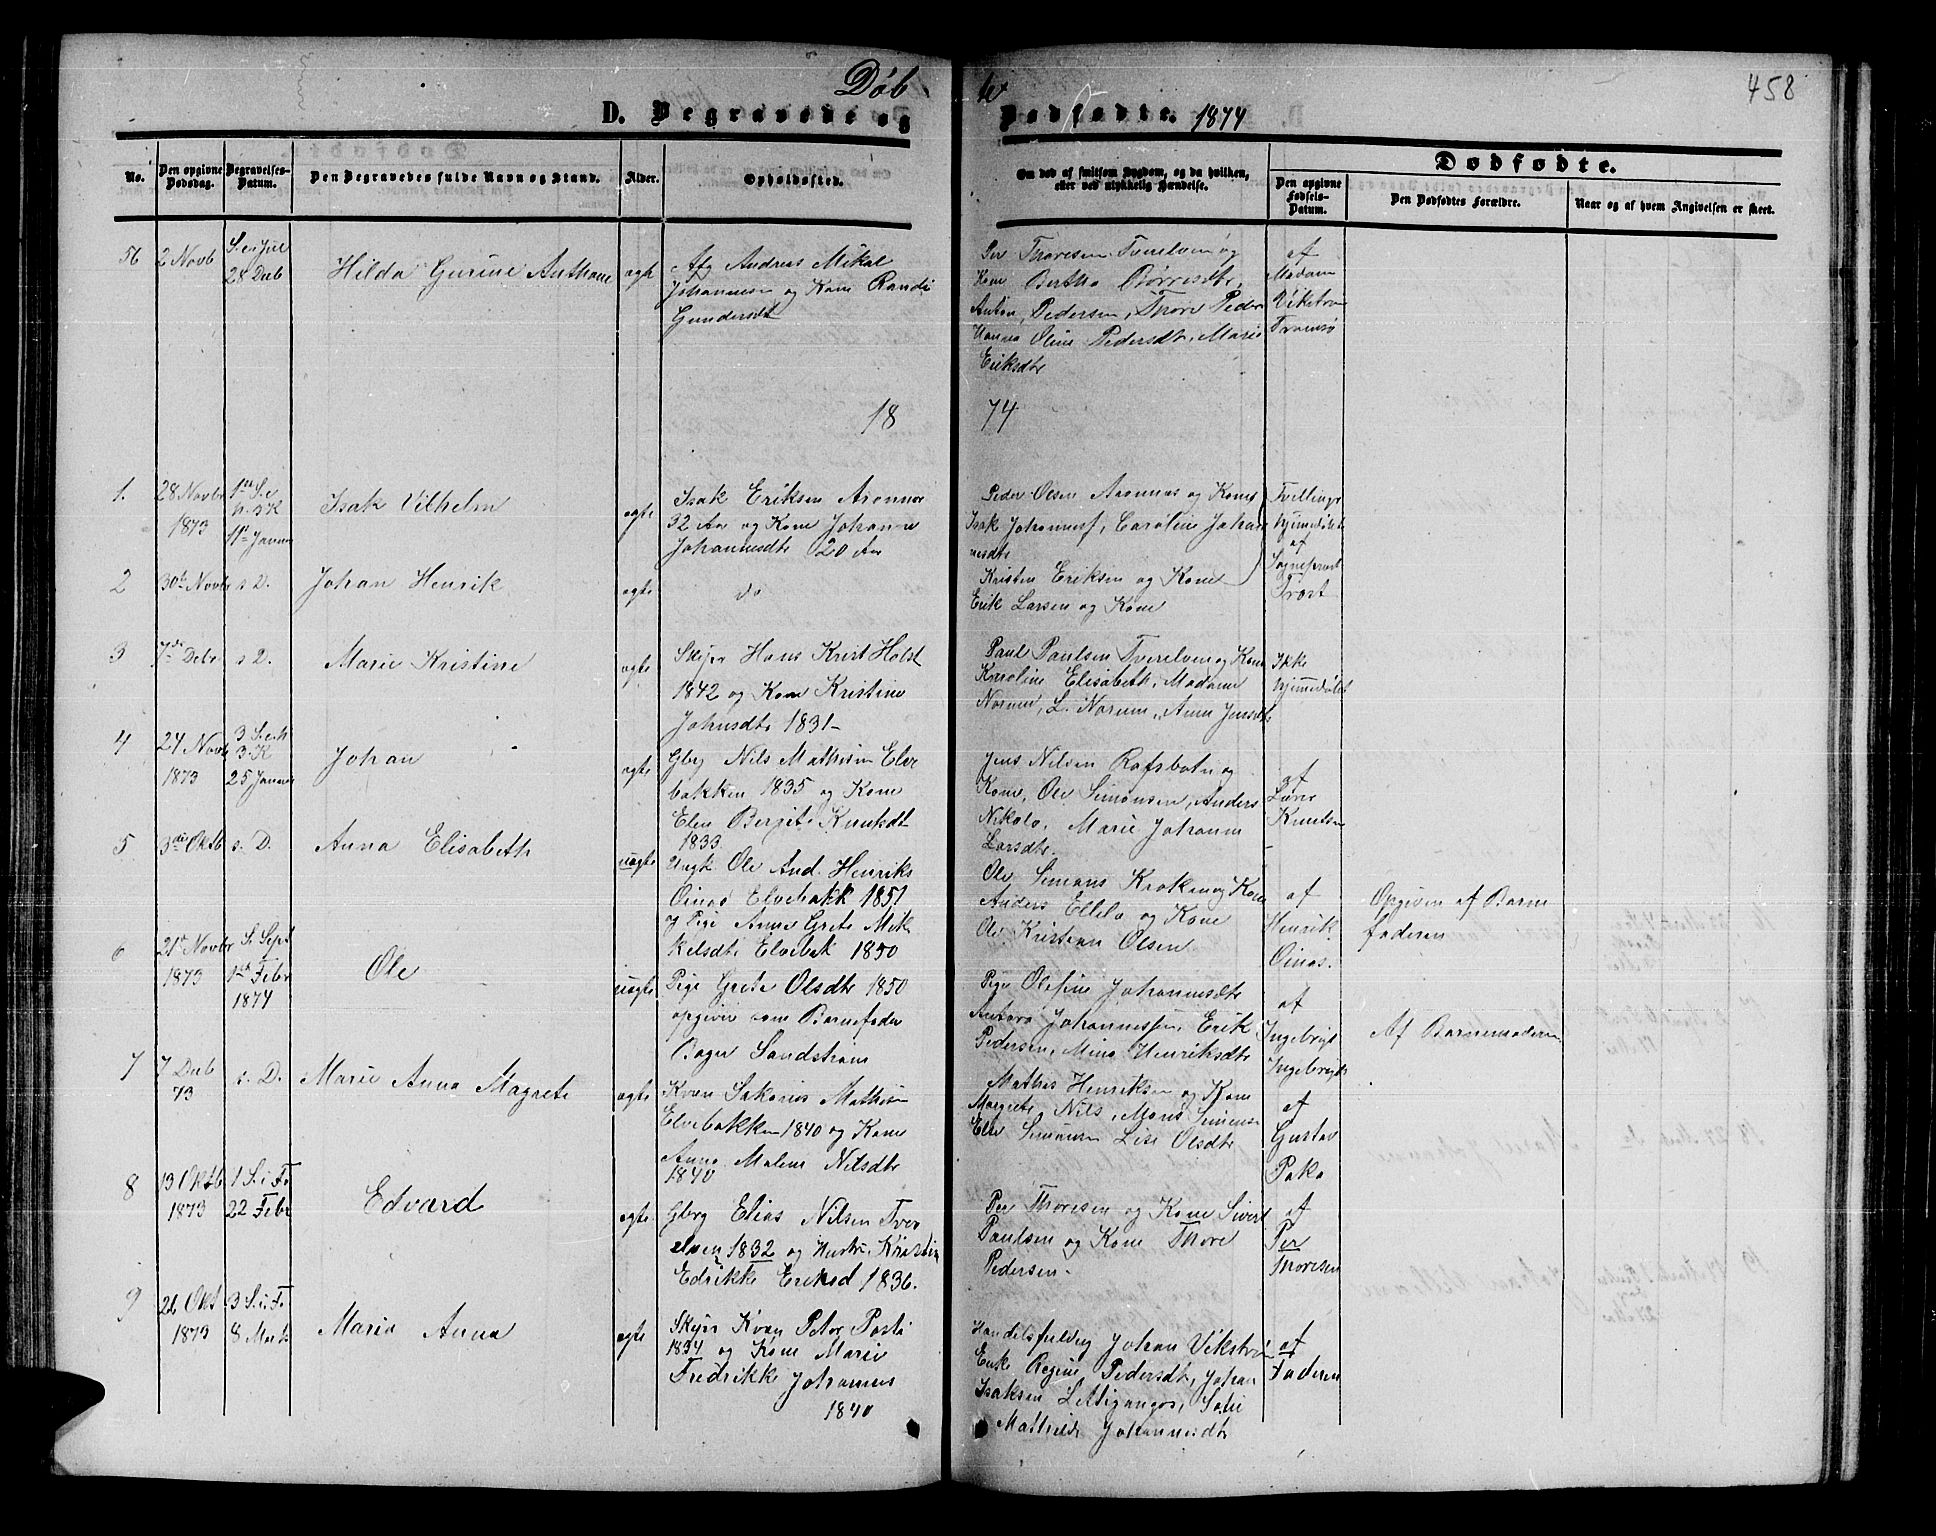 Døb te
458
D. Begravede og Dødfødte. 1874
No.
Den opgivne Dødsdag.
Begravelses-Datum.
Den Begravedes fulde Navn og Stand.
Alder.
Opholdssted.
Om død af smitsom Sygdom, og da hvilken, eller ved ulykkelig Hændelse.
Dødfødte.
Den opgivne Fødsels-Datum.
Den Dødfødtes Forældre.
Naar og af hvem Angivelsen er skeet.
56
2 Novb
S. e. Jul
28 Deb
Hilda Gurine Anthone
ægte
Andreas Mikal
Johannesen og Kone Randi
Gundersdt
Per Thoresen Tverelven og
Kone Bertha Børresdtr,
Anton Pedersen, Thore Peder
Hanna Oline Pedersdtr, Marie
Eriksdtr
af
Madam
Vikstrøm
Tromsø
18 74
1.
28 Novbr
1873
11te Januar
Isak Vilhelm
ægte
Isak Eriksen Aronnæs
32 Aar og Kone Johanne
Johannesdtr 20 Aar
Peder Olsen Aronnæs og Kone
Isak Johannesf, Caroline Johan
nesdtr
Tvillinger
hjemmedøbte
af
Sogneprest
Trost
2
30te Novbr
s. D.
Johan Henrik
ægte
do
Kristen Eriksen og Kone
Erik Larsen og Kone
3
7de Debr
s. D.
Marie Kristine
ægte
Skjer Hans Krist Holst
1842 og Kone Kristine
Johnsdtr 1831-
Paul Paulsen Tverelven og Kone
Karoline Elisabeth, Madame
Norum, L. Norum, Anne Jensdtr
Ikke
hjemmedøbt
4
24 Novbr
1873
3 S. e. H
3. K
25 Januar
Johan
ægte
Gbrg Nils Mathisen Elve
bakken 1835 og Kone
Elen Bergite Knudsdt
1833
Jens Nilsen Rafsbotn og
Kone, Ole Simonsen, Anders
Nikolo, Marie Johanne
Larsdtr.
af
Lærer
Knudsen
5
3die Oktb
s. D.
Anna Elisabeth
uægte
Ungk Ole And. Henriks
Oinas Elvebakk 1851
og Pige Anne Grete Mik
kelsdtr Elvebak 1850
Ole Simons Kroken og Kone
Anders Ellilo og Kone
Ole Kristian Olsen
af
Henrik
Oinas.
Opgiven af Barne
faderen
6
21de Novbr
1873
S. Sept
1ste Febr
1874
Ole
uægte
Pige Grete Olsdtr 1850
opgiver som Barnefader
Bager Sandstrøm
Pige Olefine Johannesdtr
Antara Johannessen, Erik
Pedersen, Mina Henriksdtr
af
Ingebrigt
Ingebrigts
Af Barnemoderen
7
7 Deb
73
s. D.
Marie Anna Magrete
ægte
Kvæn Sakarias Mathisen
Elvebakken 1840 og Kone
Anna Malene Nilsdtr
1840
Mathis Henriksen og Kone
Margrete, Nils, Mons Simonse
Else Simonsen Lise Olsdtr
af
Gustav
Paka
8
13 Oktb
1873
1 S. i F.
22 Febr
Edvard
ægte
Gbrg Elias Nilsen Tver
elven 1832 og Hustru Kristin
Edrikke Eriksd 1836.
Per Thoresen og Kone Sivert
Paulsen og Kone Thore
Pedersen.
af
Per
Thoresen
9
26 Okt
1873
3 S. i F.
8 Marts
Maria Anna
ægte
Skjer Kvæn Peter Posti
1834 og Kone Marie
Fredrikke Johannes
1840
Handelsfuldmg Johan Vikstrøm
Enke Regine Pedersdtr, Johan
Isaksen Lettigangos, Sofie
Mathilde Johannesdtr
af
Faderen